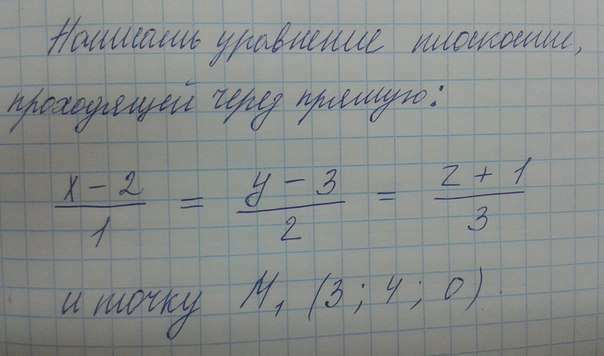 Написать уравнение плоскости,
проходящей черед прямую:
x - 2 / 1 = y - 3 / 2 = z + 1 / 3
и точку M₁ (3; 4; 0).